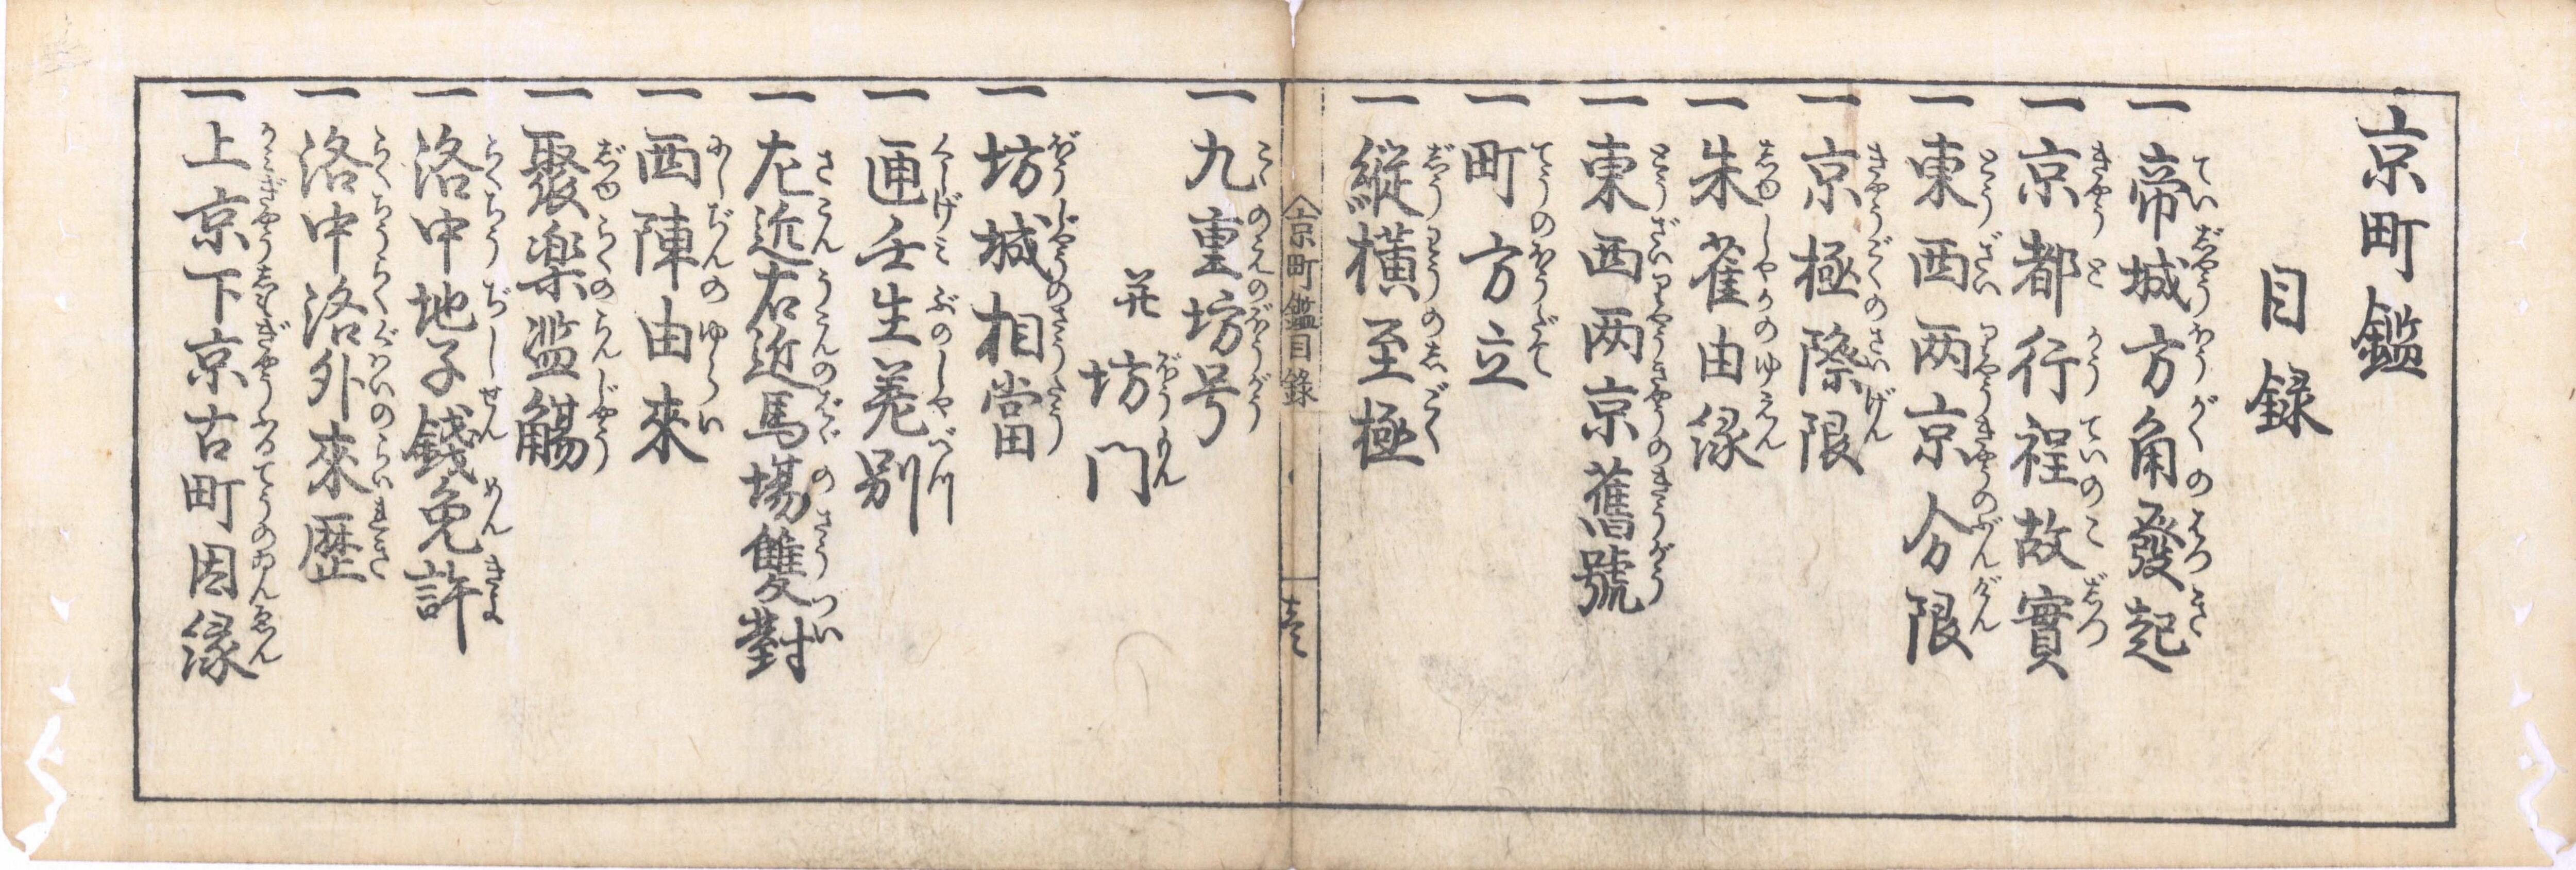 京町鑑
目録
一帝城方角發起
一京都行程故實
一東西両京分限
一京極際限
一朱雀由緣
一東西両京舊號
一町方立
一縱橫至極
京町鑑目録 壱
一九重坊号
并坊門
一坊城相當
一匣壬生差別
一左近右近馬場雙對
一西陣由來
一聚楽濫觴
一洛中地子錢免許
一洛中洛外來歷
一上京下京古町因緣